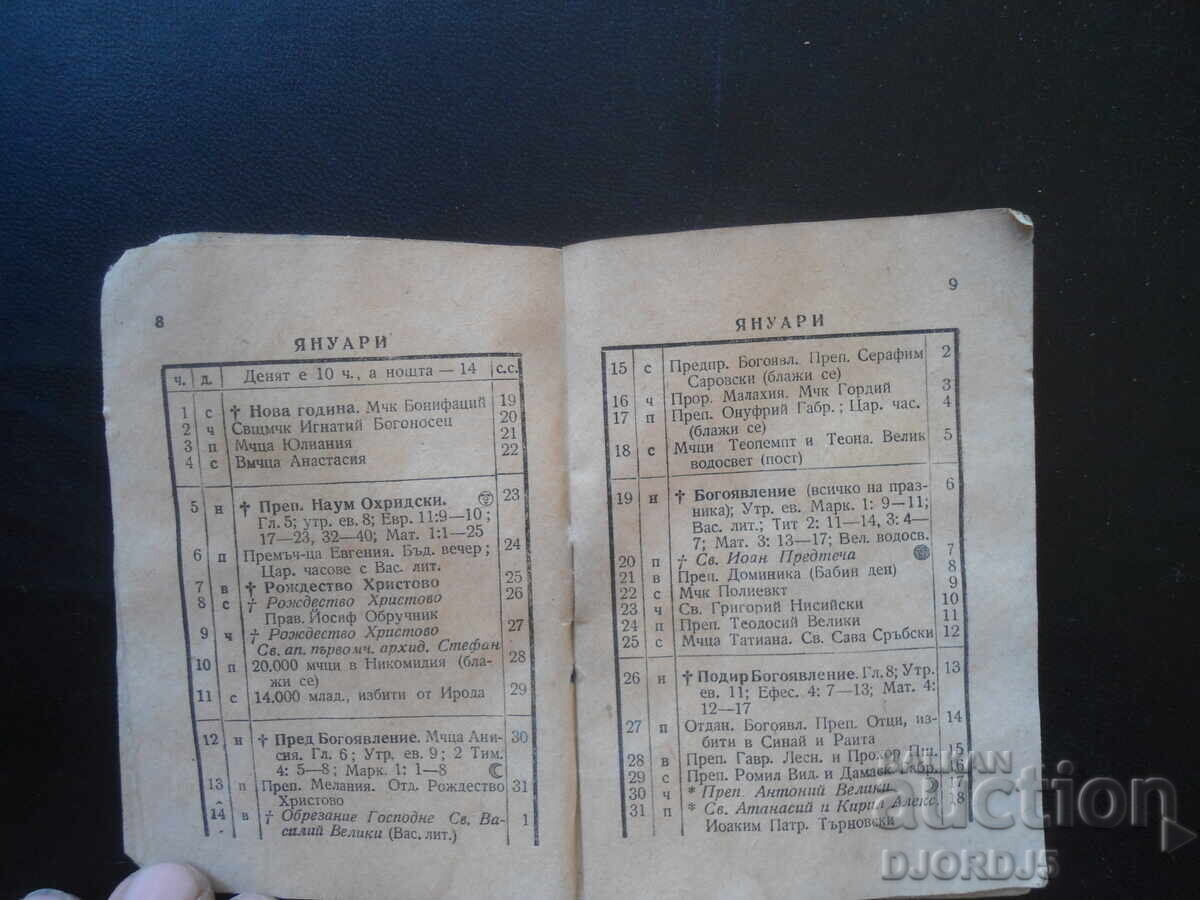 8
ЯНУАРИ
ч. д. Денят е 10 ч., а нощта — 14 с.с.
1 с † Нова година. Мчк Бонифаций 19
2 ч Свщмчк Игнатий Богоносец 20
3 п Мчца Юлиания 21
4 с Вмчца Анастасия 22
5 н † Преп. Наум Охридски. 23
Гл. 5; утр. ев. 8; Евр. 11:9—10;
17—23, 32—40; Мат. 1:1—25
6 п Премъч-ца Евгения. Бъд. вечер; 24
Цар. часове с Вас. лит.
7 в † Рождество Христово 25
8 с † Рождество Христово 26
Прав. Йосиф Обручник
9 ч † Рождество Христово 27
Св. ап. първомч. архид. Стефан
10 п 20.000 мчци в Никомидия (бла- 28
жи се)
11 с 14.000 млад., избити от Ирода 29
12 н † Пред Богоявление. Мчца Ани- 30
сия. Гл. 6; Утр. ев. 9; 2 Тим.
4: 5—8; Марк. 1: 1—8
13 п Преп. Мелания. Отд. Рождество 31
Христово
14 в † Обрезание Господне Св. Ва- 1
силий Велики (Вас. лит.)
9
ЯНУАРИ
15 с Предпр. Богоявл. Преп. Серафим 2
Саровски (блажи се)
16 ч Прор. Малахия. Мчк Гордий 3
17 п Преп. Онуфрий Габр.; Цар. час. 4
(блажи се)
18 с Мчци Теопемпт и Теона. Велик 5
водосвет (пост)
19 н † Богоявление (всичко на праз- 6
ника); Утр. ев. Марк. 1: 9—11;
Вас. лит.; Тит 2: 11—14, 3: 4—
7; Мат. 3: 13—17; Вел. водосв.
20 п † Св. Иоан Предтеча 7
21 в Преп. Доминика (Бабин ден) 8
22 с Мчк Полиевкт 9
23 ч Св. Григорий Нисийски 10
24 п Преп. Теодосий Велики 11
25 с Мчца Татиана. Св. Сава Сръбски 12
26 н † Подир Богоявление. Гл. 8; Утр. 13
ев. 11; Ефес. 4: 7—13; Мат. 4:
12—17
27 п Отдан. Богоявл. Преп. Отци, из- 14
бити в Синай и Раита
28 в Преп. Гавр. Лесн. и Прохор Пш. 15
29 с Преп. Ромил Вид. и Дамаск. Габр. 16
30 ч * Преп. Антоний Велики 17
31 п * Св. Атанасий и Кирил Алекс. 18
Иоаким Патр. Търновски
BALKAN
auction
DJORDJ5